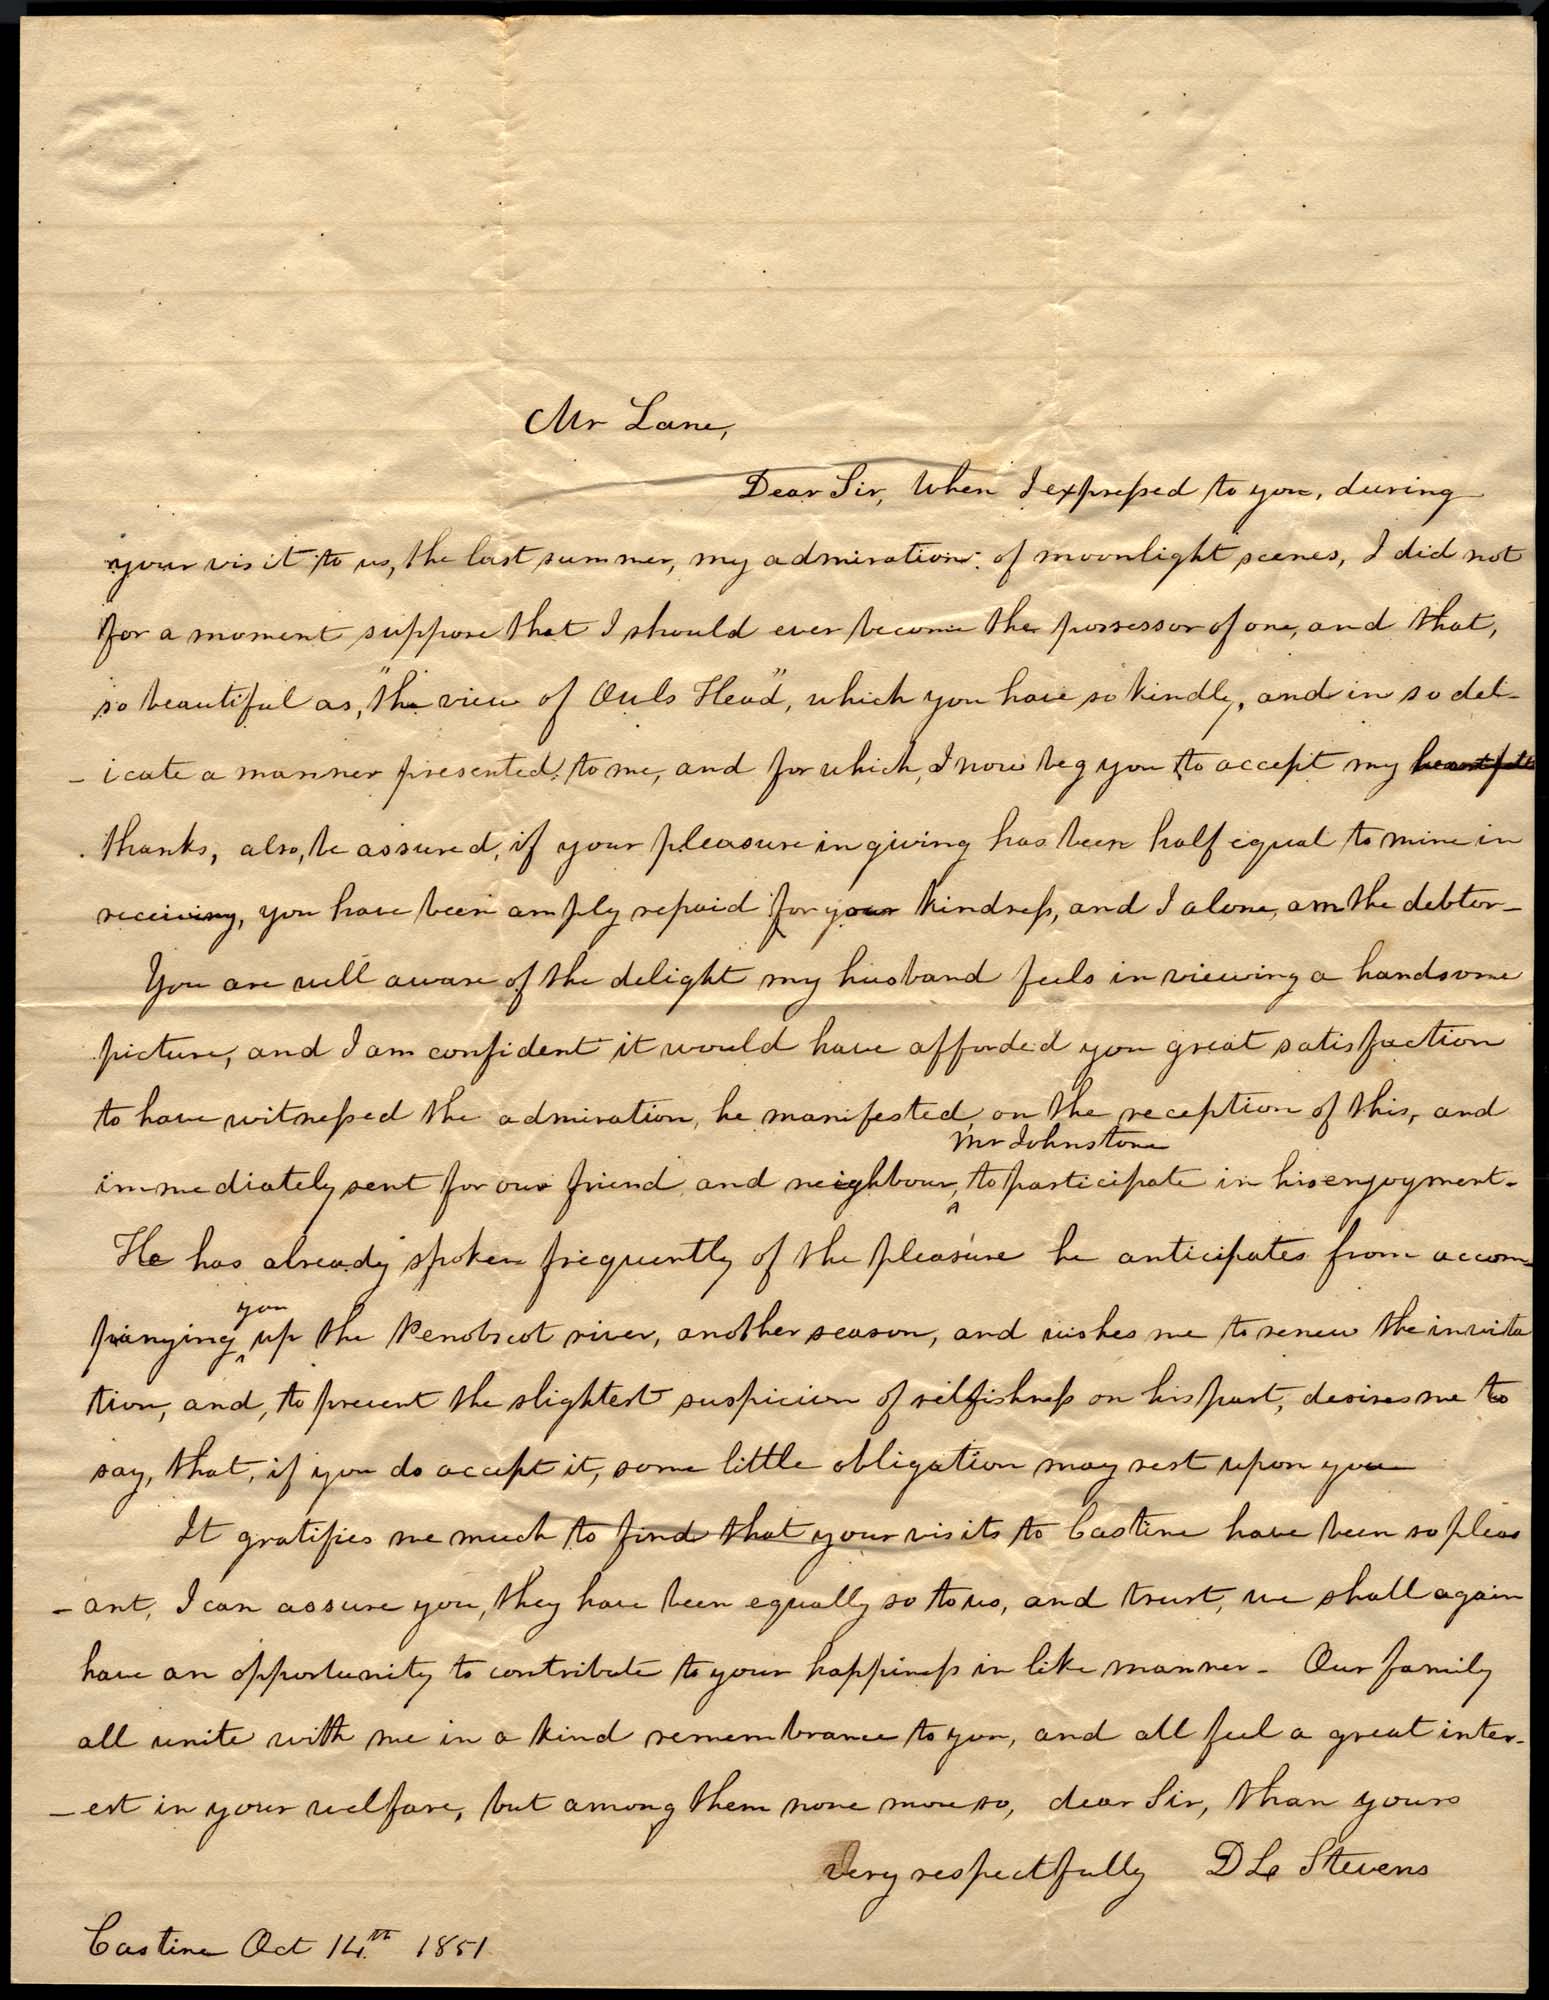 Mr Lane,
Dear Sir, When I expressed to you, during
your visit to us, the last summer, my admiration of moonlight scenes, I did not
for a moment suppose that I should ever become the possessor of one, and that,
so beautiful as, "the view of Owls Head", which you have so kindly, and in so del-
-icate a manner presented, to me, and for which, I now beg you to accept my heartfelt
thanks, also, be assured, if your pleasure in giving has been half equal to mine in
receiving, you have been amply repaid for your kindness, and I alone, am the debtor-
You are well aware of the delight my husband feels in viewing a handsome
picture, and I am confident it would have afforded you great satisfaction
to have witnessed the admiration, he manifested, on the reception of this, and
Mr Johnston
immediately sent for our friend and neighbour, ^ to participate in his enjoyment-
He has already spoken frequently of the pleasure he anticipates from accom-
you
panying ^ up the Penobscot river, another season, and wishes me to renew the invita
tion, and, to prevent the slightest suspicion of selfishness on his part, desires me to
say, that, if you do accept it, some little obligation may rest upon you
It gratifies me much to find that your visits to Castine have been so pleas
-ant, I can assure you, they have been equally so to us, and trust, we shall again
have an opportunity to contribute to your happiness in like manner- Our family
all unite with me in a kind remembrance to you, and all feel a great inter-
-est in your welfare, but among them none more so, dear Sir, than yours
Very respectfully D L Stevens
Castine Oct 14th 1851